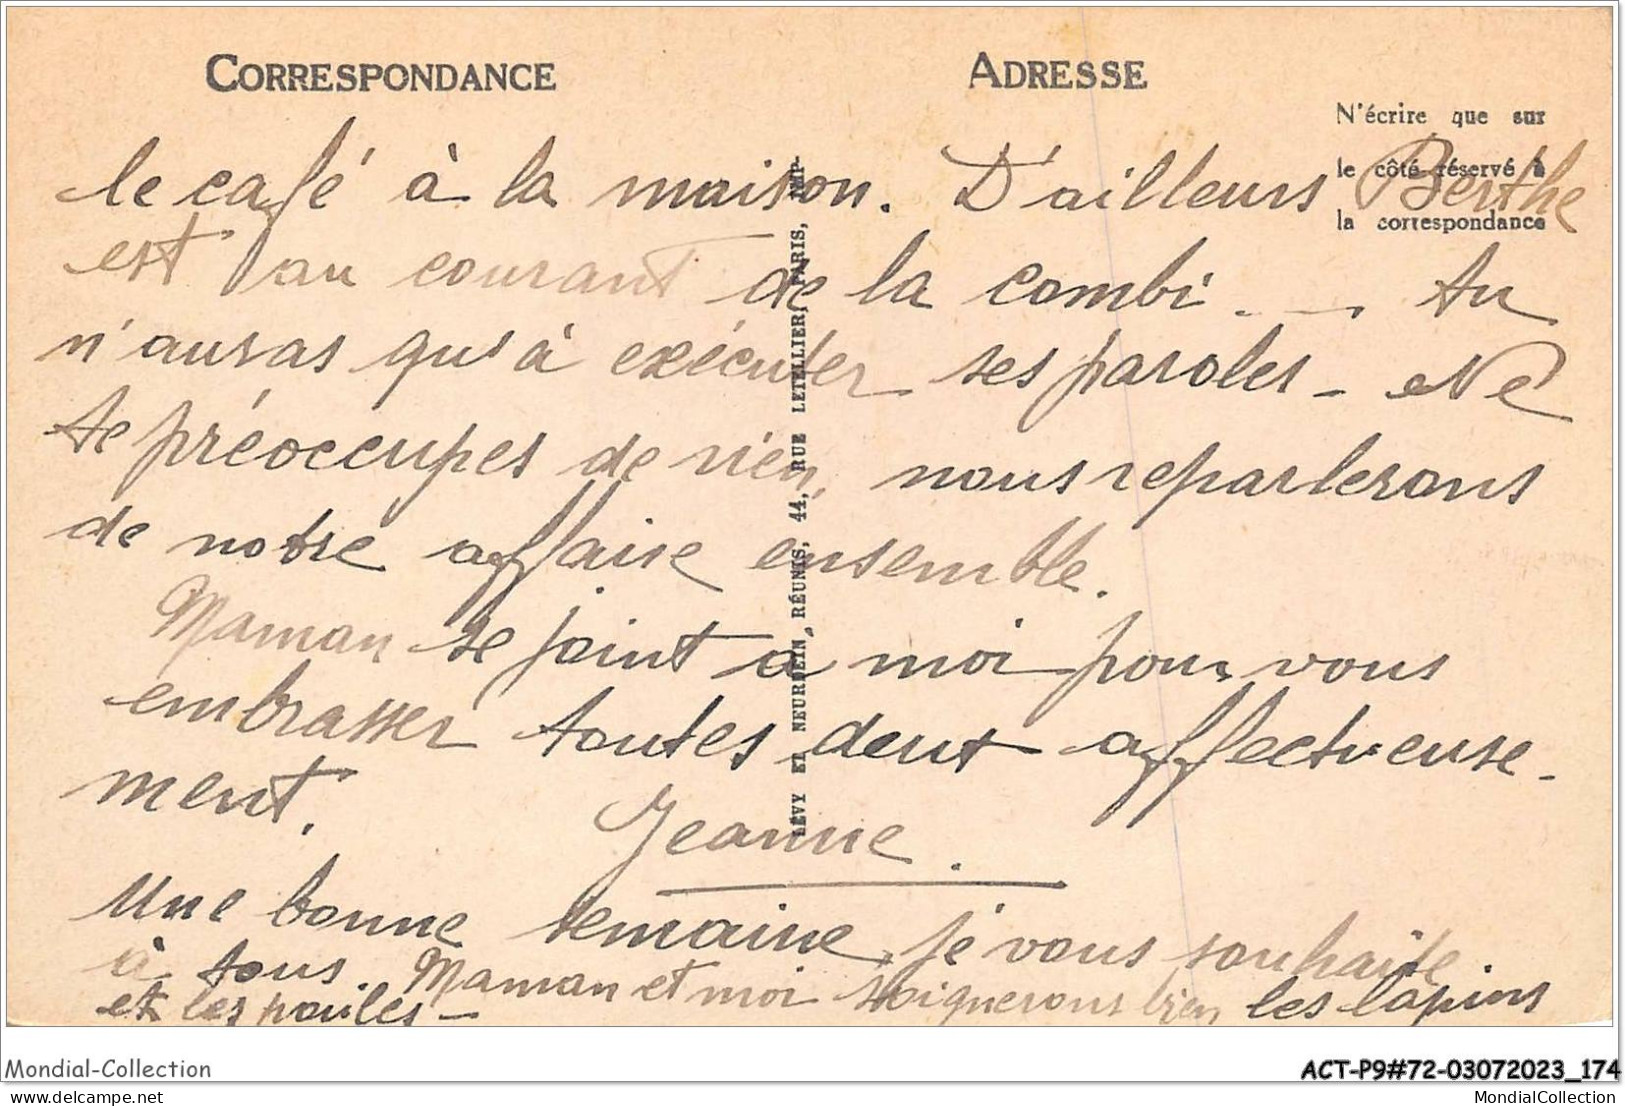 CORRESPONDANCE
ADRESSE
N'écrire que sur
le côté réservé à
la correspondance
le café à la maison. D'ailleurs Berthe
est au courant de la combi. _ . tu
n'auras qu'à exécuter ses paroles - Ne
te préoccupes de rien, nous reparlerons
de notre affaire ensemble.
Maman se joint a moi pour vous
embrasser toutes deux affectueuse-
ment.
Jeanne.
Une bonne semaine je vous souhaite
à tous. Maman et moi soignerons bien les lapins
et les poules -
LÉVY ET NEURDEIN RÉUNIS, 44, RUE LETELLIER, PARIS, IMP.
Mondial-Collection
ACT-P9#72-03072023_174
www.delcampe.net
MondialCollection